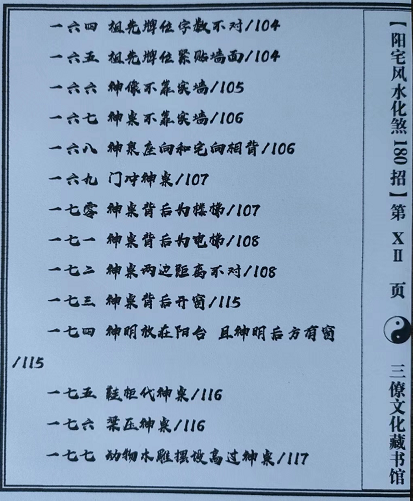 一六四 祖先牌位字数不对/104
一六五 祖先牌位紧贴墙面/104
一六六 神像不靠实墙/105
一六七 神桌不靠实墙/106
一六八 神桌座向和宅向相背/106
一六九 门对神桌/107
一七零 神桌背后为楼梯/107
一七一 神桌背后为电梯/108
一七二 神桌两边距离不对/108
一七三 神桌背后开窗/115
一七四 神明放在阳台 且神明后方有窗
/115
一七五 鞋柜代神桌/116
一七六 梁压神桌/116
一七七 动物木雕摆设高过神桌/117
【阳宅风水化煞180招】第 XII 页 三僚文化藏书馆